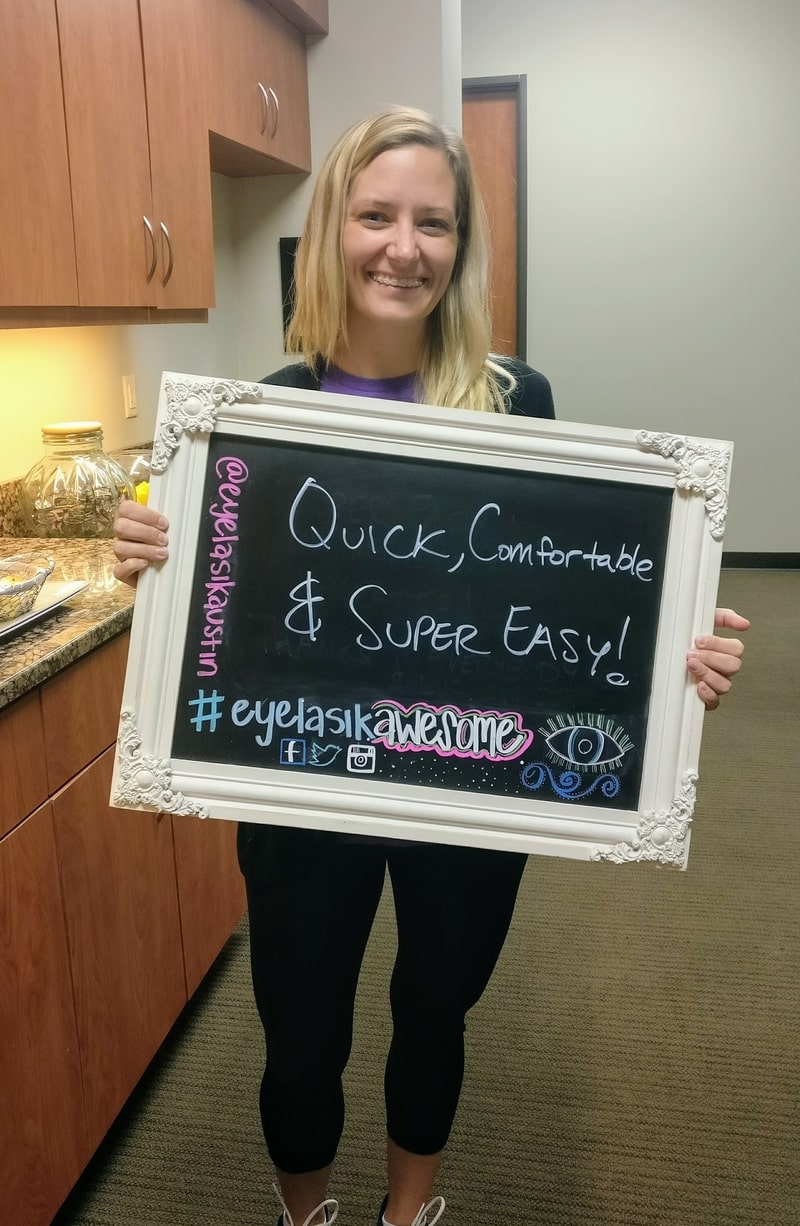 @eyelasikaustin
Quick, Comfortable
& Super Easy!
#eyelasikawesome
f